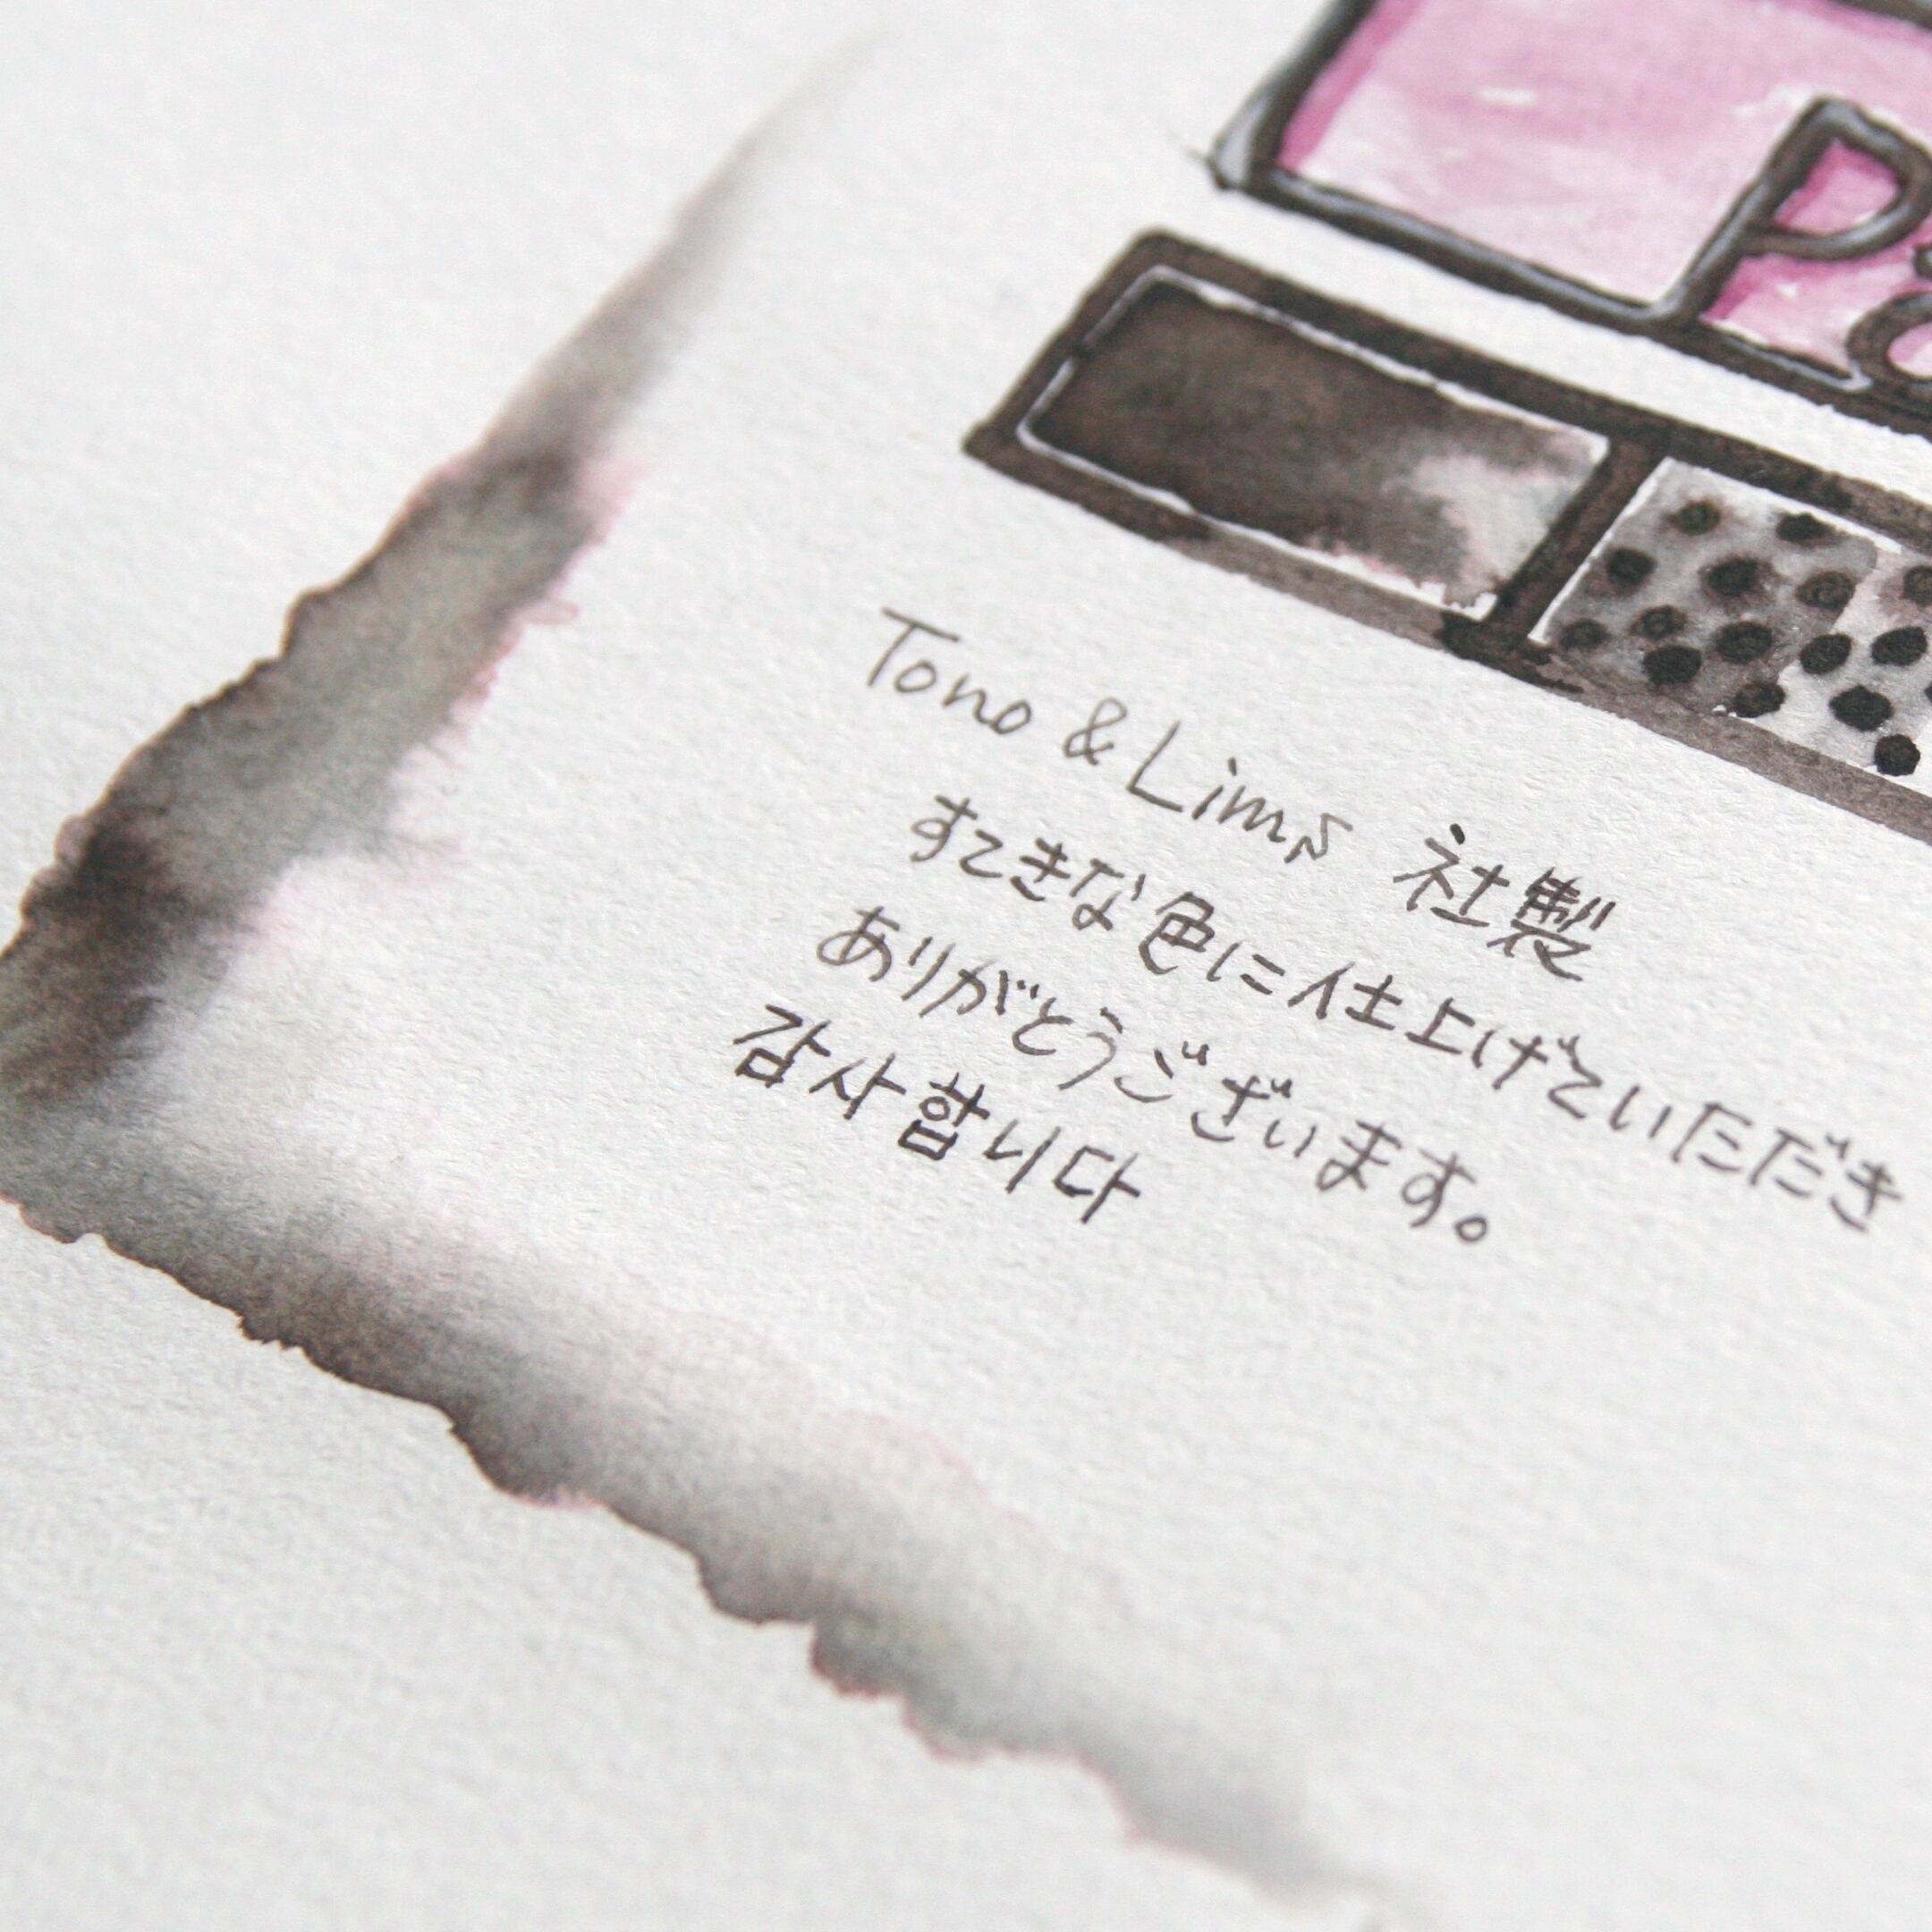 Pa
Tono & Lims 社製
すてきな色に仕上げていただき
ありがとうございます。
감사합니다